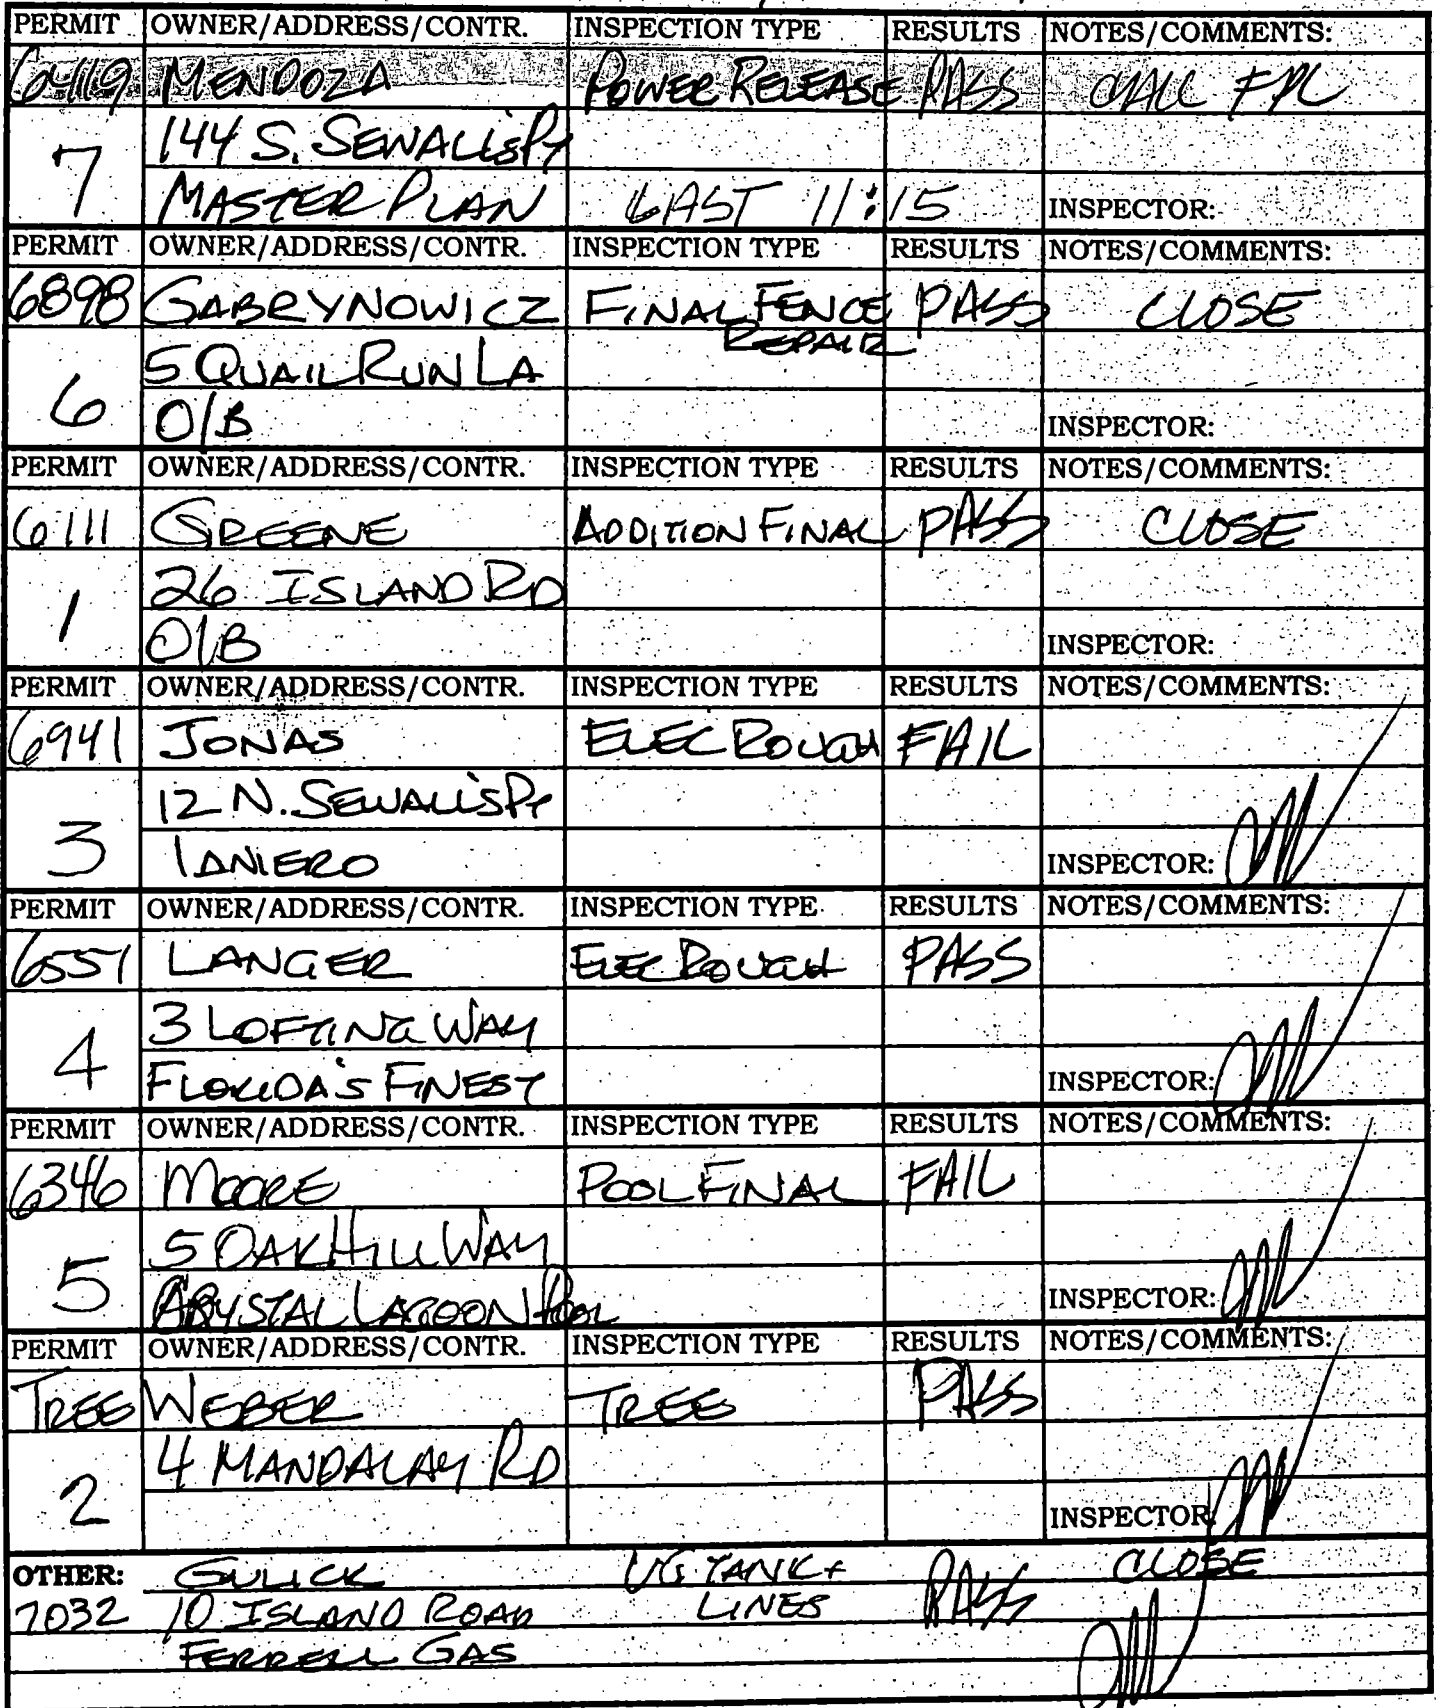 PERMIT OWNER/ADDRESS/CONTR. INSPECTION TYPE RESULTS NOTES/COMMENTS:
MENDOZA POWER RELEASE PASS CALL FPL
7 144 S. SEWALL'S PT
MASTER PLAN LAST 11:15 INSPECTOR:
PERMIT OWNER/ADDRESS/CONTR. INSPECTION TYPE RESULTS NOTES/COMMENTS:
6898 GABRYNOWICZ FINAL FENCE PASS CLOSE
REPAIR
6 5 QUAIL RUN LA
O/B INSPECTOR:
PERMIT OWNER/ADDRESS/CONTR. INSPECTION TYPE RESULTS NOTES/COMMENTS:
6111 GREENE ADDITION FINAL PASS CLOSE
1 26 ISLAND RD
O/B INSPECTOR:
PERMIT OWNER/ADDRESS/CONTR. INSPECTION TYPE RESULTS NOTES/COMMENTS:
6941 JONAS ELEC ROUGH FAIL
3 12 N. SEWALL'S PT
IANIERO INSPECTOR:
PERMIT OWNER/ADDRESS/CONTR. INSPECTION TYPE RESULTS NOTES/COMMENTS:
6551 LANGER ELEC ROUGH PASS
4 3 LOFTING WAY
FLORIDA'S FINEST INSPECTOR:
PERMIT OWNER/ADDRESS/CONTR. INSPECTION TYPE RESULTS NOTES/COMMENTS:
6346 MOORE POOL FINAL FAIL
5 5 OAK HILL WAY
CRYSTAL LAGOON POOL INSPECTOR:
PERMIT OWNER/ADDRESS/CONTR. INSPECTION TYPE RESULTS NOTES/COMMENTS:
TREE WEBER TREE PASS
2 4 MANDALAY RD
INSPECTOR:
OTHER: GULICK UG TANK + PASS CLOSE
7032 10 ISLAND ROAD LINES
FERRELL GAS